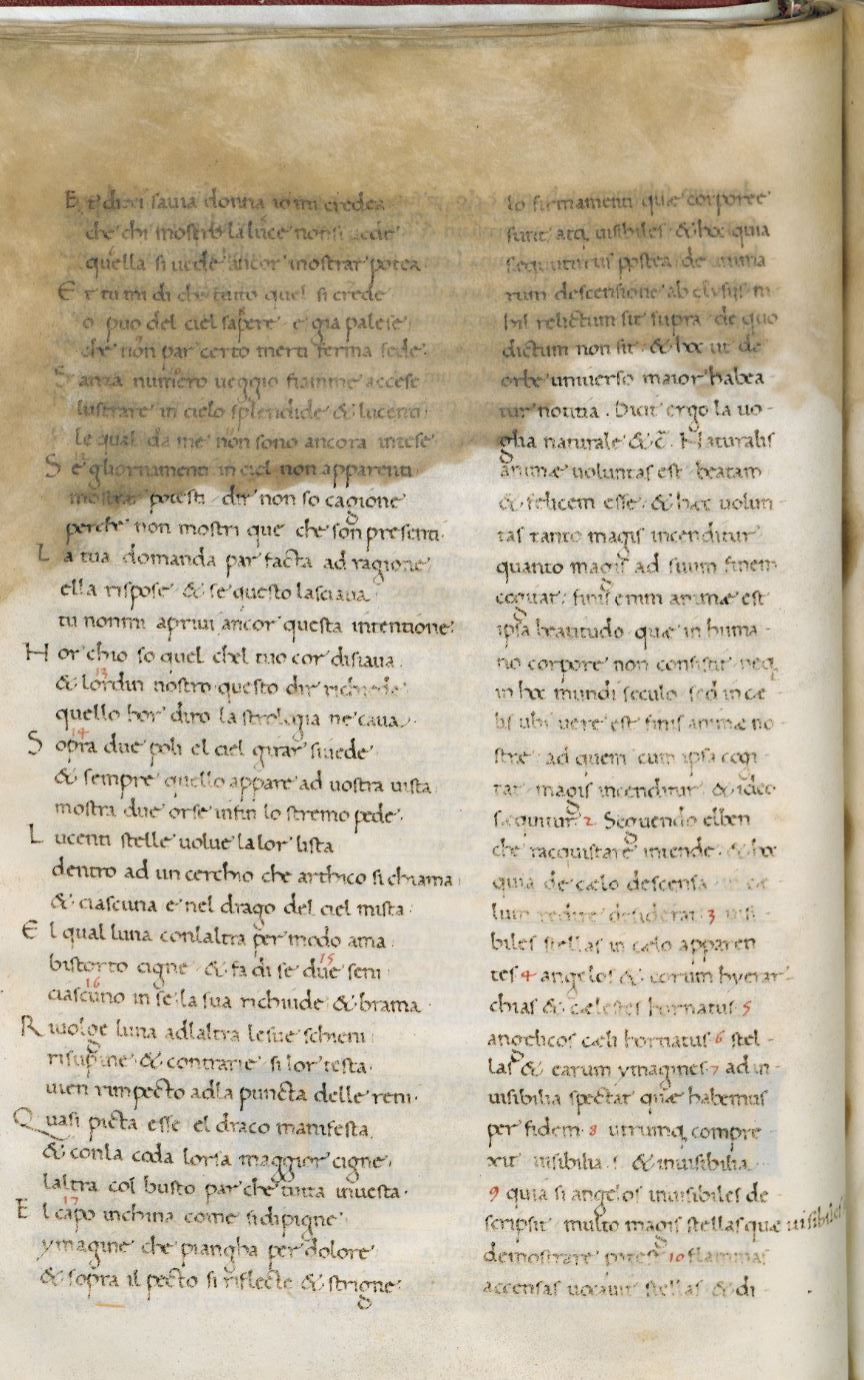 Et dissi savia donna io mi credea
che chi mostrò la luce non si vede
quella si vede ancor mostrar potea
Et tu mi di che tutto quel si crede
o puo del ciel sapere e gia palese
che non par certo merti ferma sede.
Sanza numero veggio fiamme accese
lustrare in cielo splendide & lucenti
le qual da me non sono ancora intese
Se gliornamenti in ciel non apparenti
mostrar potesti dir non so cagione
perche non mostri que che son presenti.
La tua domanda par facta ad ragione
ella rispose & se questo lasciava
tu nonmi aprivi ancor questa intentione:
Hor chio so quel chel tuo cor disiava.
13
& lordin nostro questo dir richiede
quello hor diro la strologia ne cava.
14
Sopra due poli el ciel girar sivede
& sempre quello appare ad vostra vista
mostra due orse infin lo stremo pede.
Lucenti stelle volve la lor lista
dentro ad un cerchio che arthico si chiama
& ciascuna e nel drago del ciel mista.
El qual luna conlaltra per modo ama
15
bistorto cigne & fa di se due seni
16
ciascuno in se la sua richiude & brama.
Rivolge luna adlaltra lesue schieni
risupine & contrarie si lor testa.
vien rimpecto adla puncta delle reni.
Quasi picta esse el draco manifesta.
& conla coda lorsa maggior cigne.
laltra col busto par che tuta investa.
17
El capo inchina come sidipigne
ymagine che piangha per dolore
& sopra il pecto si riflecte & strigne.
lo firmamenti quæ corporee
sunt atq visibiles & hoc quia
sequuturus postea de anima
rum descensione ab elysiis ni
his relictum sit supra de quo
dictum non sit. & hoc ut de
orbe universo maior habea
tur notitia. Dicit ergo la vo-
glia naturale & c̄. Naturalis
animæ voluntas est beatam
& felicem esse. & hæc volun
tas tanto magis incenditur
quanto magis ad suum finem
cogitat. finis enim animæ est
ipsa beatitudo quæ in huma-
no corpore non consistit neq
in hoc mundi seculo sed in cæ
lis ubi vere est finis animæ no-
stræ ad quem cum ipsa cogi
tat magis incenditur & ideo
sequitur 2 Seguendo elben
che racquistare intende. & hoc
quia de cælo descensa in cæ
lum redire desiderat 3 visi-
biles stellas in cælo apparen
tes 4 angelos & eorum hyerar-
chias & cælestes hornatus 5
angelicos cæli hornatus 6 stel-
las & earum ymagines 7 ad in-
visibilia spectat quæ habemus
per fidem 8 utrumq compre-
xit visibilia.s. & invisibilia
9 quia si angelos invisibiles de
scripsit multo magis stellas quæ visibiles
demostrare potest 10 flammas
accensas vocavit stellas & di-